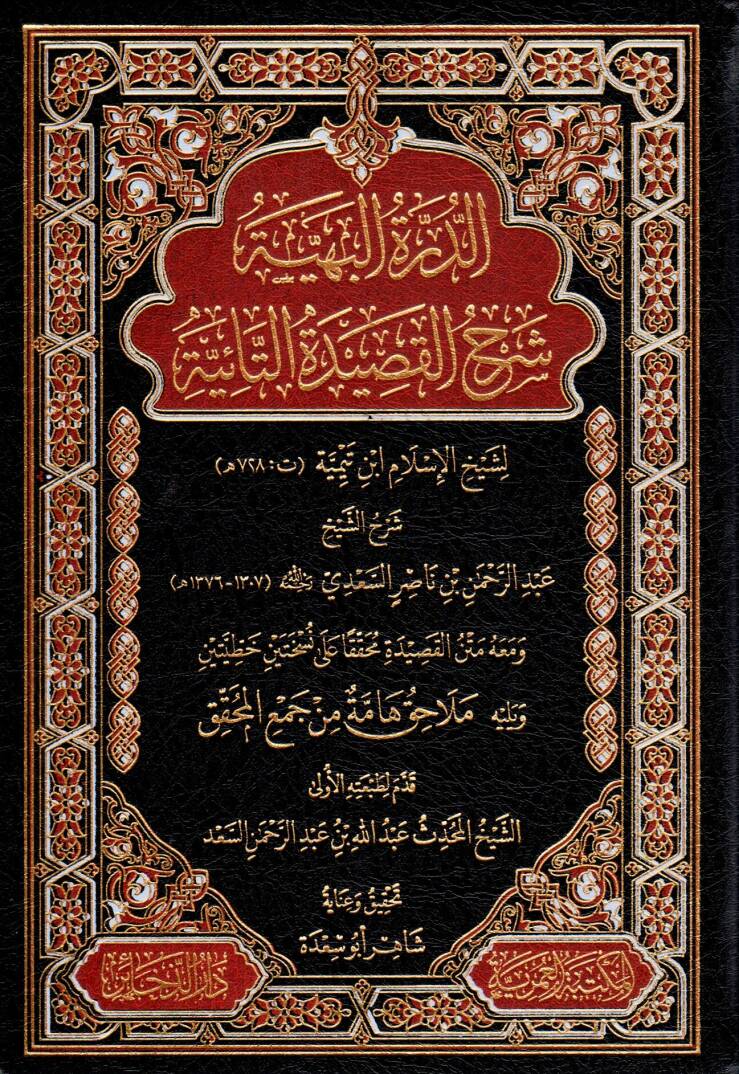 الدُّرَّةُ البَهِيَّةُ
شَرْحُ القَصِيدَةِ التَّائِيَّةِ
لِشَيْخِ الإِسْلَامِ ابْنِ تَيْمِيَّة (ت: ٧٢٨هـ)
شَرْحُ الشَّيْخِ
عَبْدِ الرَّحْمَنِ بْنِ نَاصِرٍ السَّعْدِيِّ رَحِمَهُ اللَّهُ (١٣٠٧-١٣٧٦هـ)
وَمَعَهُ مَتْنُ القَصِيدَةِ مُحَقَّقًا عَلَى نُسْخَتَيْنِ خَطِّيَّتَيْنِ
وَيَلِيْهِ مَلَاحِقُ هَامَّةٌ مِنْ جَمْعِ المُحَقِّقِ
قَدَّمَ لِطَبْعَتِهِ الأُولَى
الشَّيْخُ المُحَدِّثُ عَبْدُ اللهِ بْنُ عَبْدِ الرَّحْمَنِ السَّعْد
تَحْقِيقُ وَعِنَايَةُ
شَاهِر أَبُو سَعْدَة
المكتبة العمرية
دار الذخائر